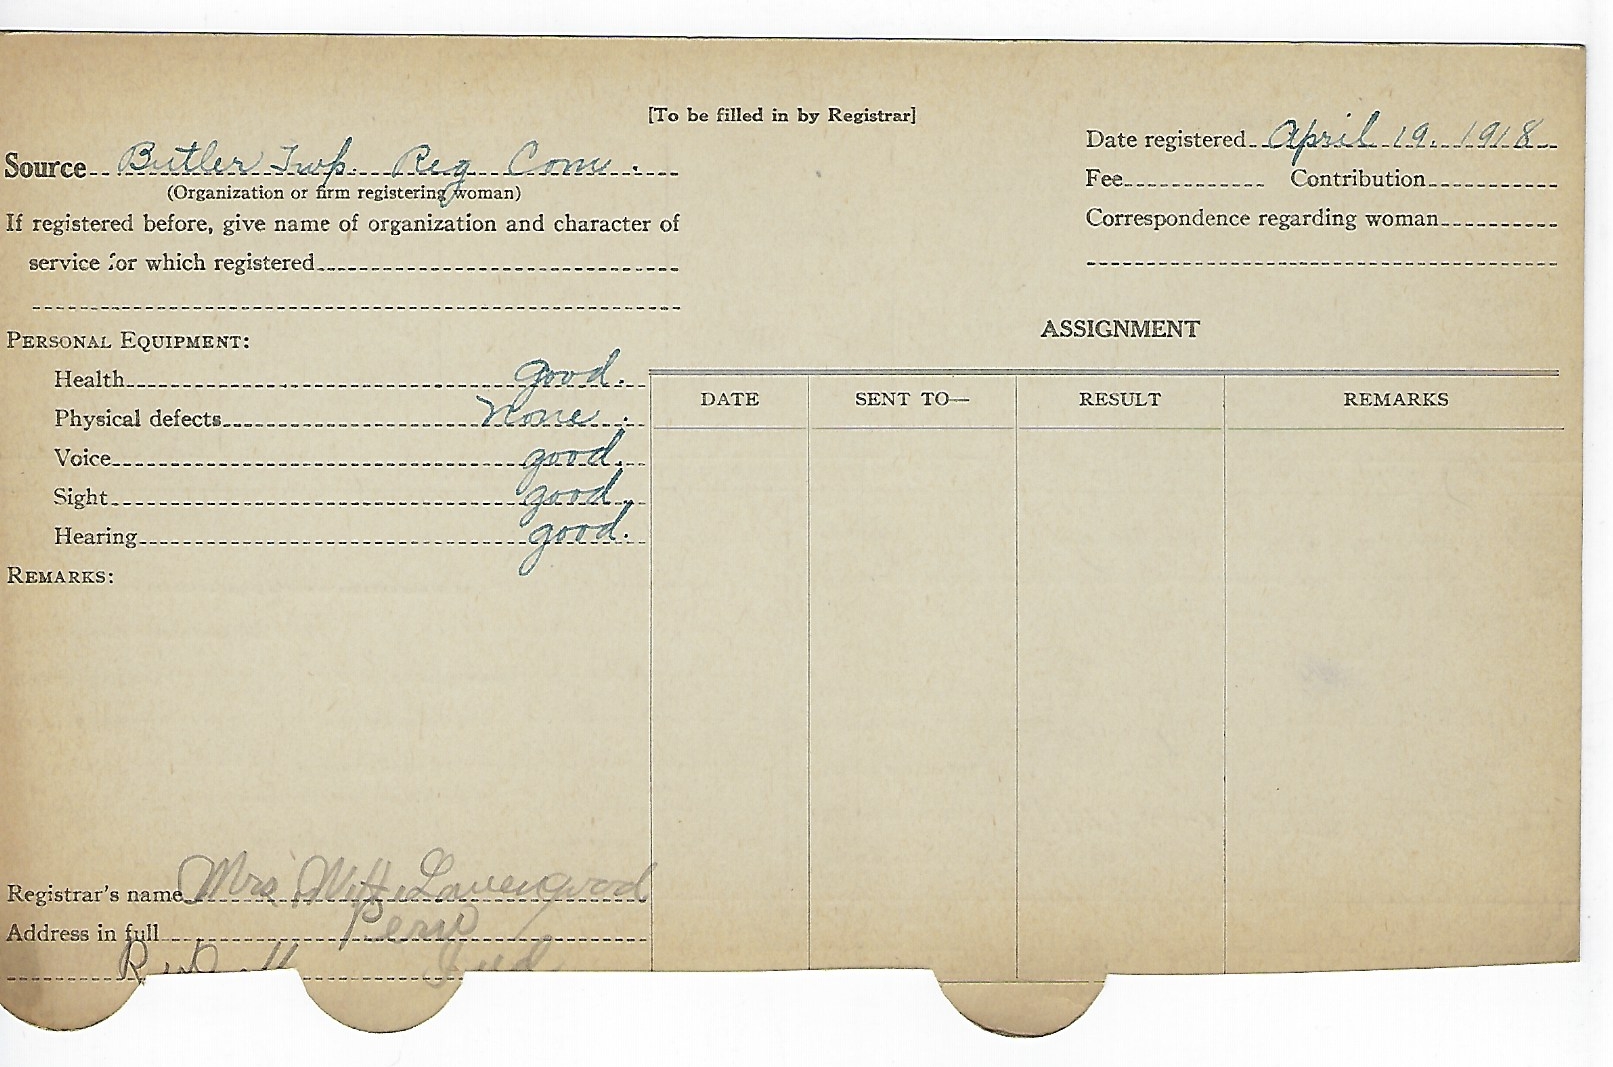 [To be filled in by Registrar]
Date registered April 19. 1918
Source Butler Twp. Reg Com.
(Organization or firm registering woman)
Fee Contribution
If registered before, give name of organization and character of
Correspondence regarding woman
service for which registered
ASSIGNMENT
PERSONAL EQUIPMENT:
Health good.
Physical defects None.
Voice good.
Sight good.
Hearing good.
DATE SENT TO— RESULT REMARKS
REMARKS:
Registrar's name Mrs
Address in full Peru
Ind